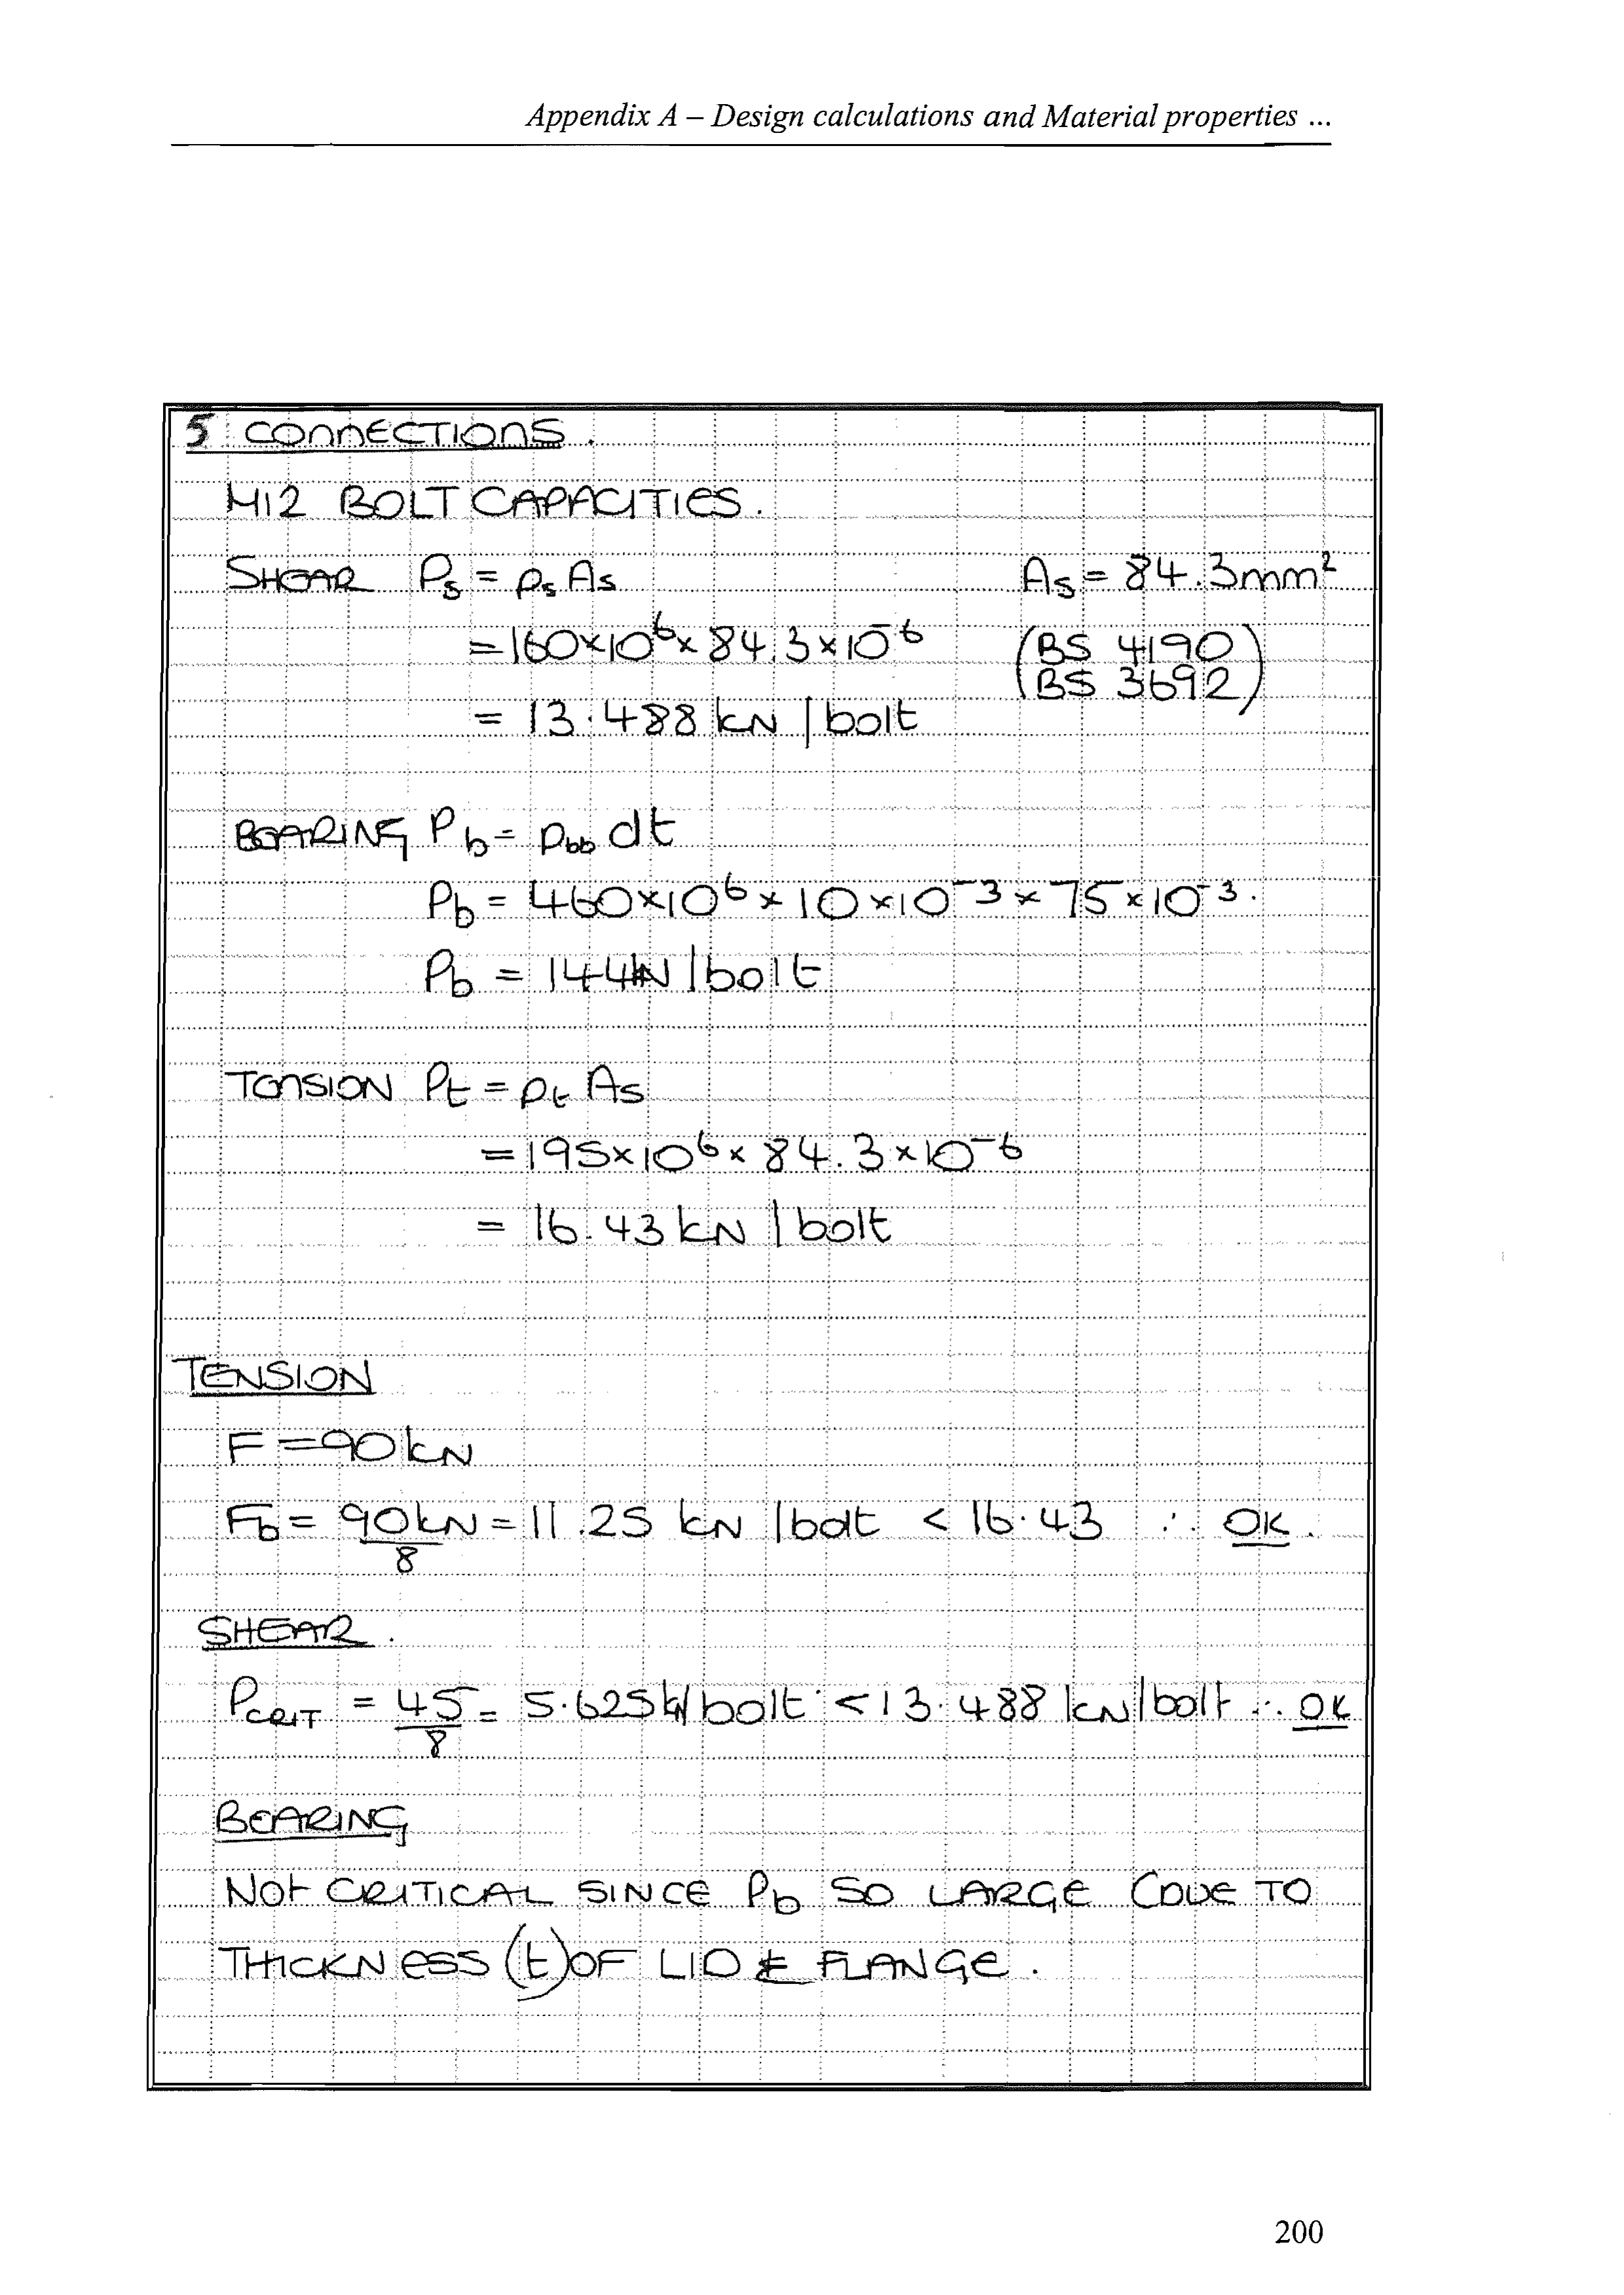 Appendix A – Design calculations and Material properties ...
5 CONNECTIONS.
M12 BOLT CAPACITIES.
SHEAR Ps = ps As    As = 84.3mm²
= 160×10⁶ × 84.3×10⁻⁶    (BS 4190)
= 13.488 kN / bolt    (BS 3692)
BEARING Pb = pbb dt
Pb = 460×10⁶ × 10×10⁻³ × 75×10⁻³.
Pb = 144kN / bolt
TENSION Pt = pt As
= 195×10⁶ × 84.3×10⁻⁶
= 16.43 kN / bolt
TENSION
F = 90kN
Fb = 90kN/8 = 11.25 kN / bolt < 16.43 ∴ OK.
SHEAR.
PCRIT = 45/8 = 5.625kN/bolt < 13.488 kN/bolt ∴ OK
BEARING
NOT CRITICAL SINCE Pb SO LARGE (DUE TO
THICKNESS (t) OF LID & FLANGE.
200